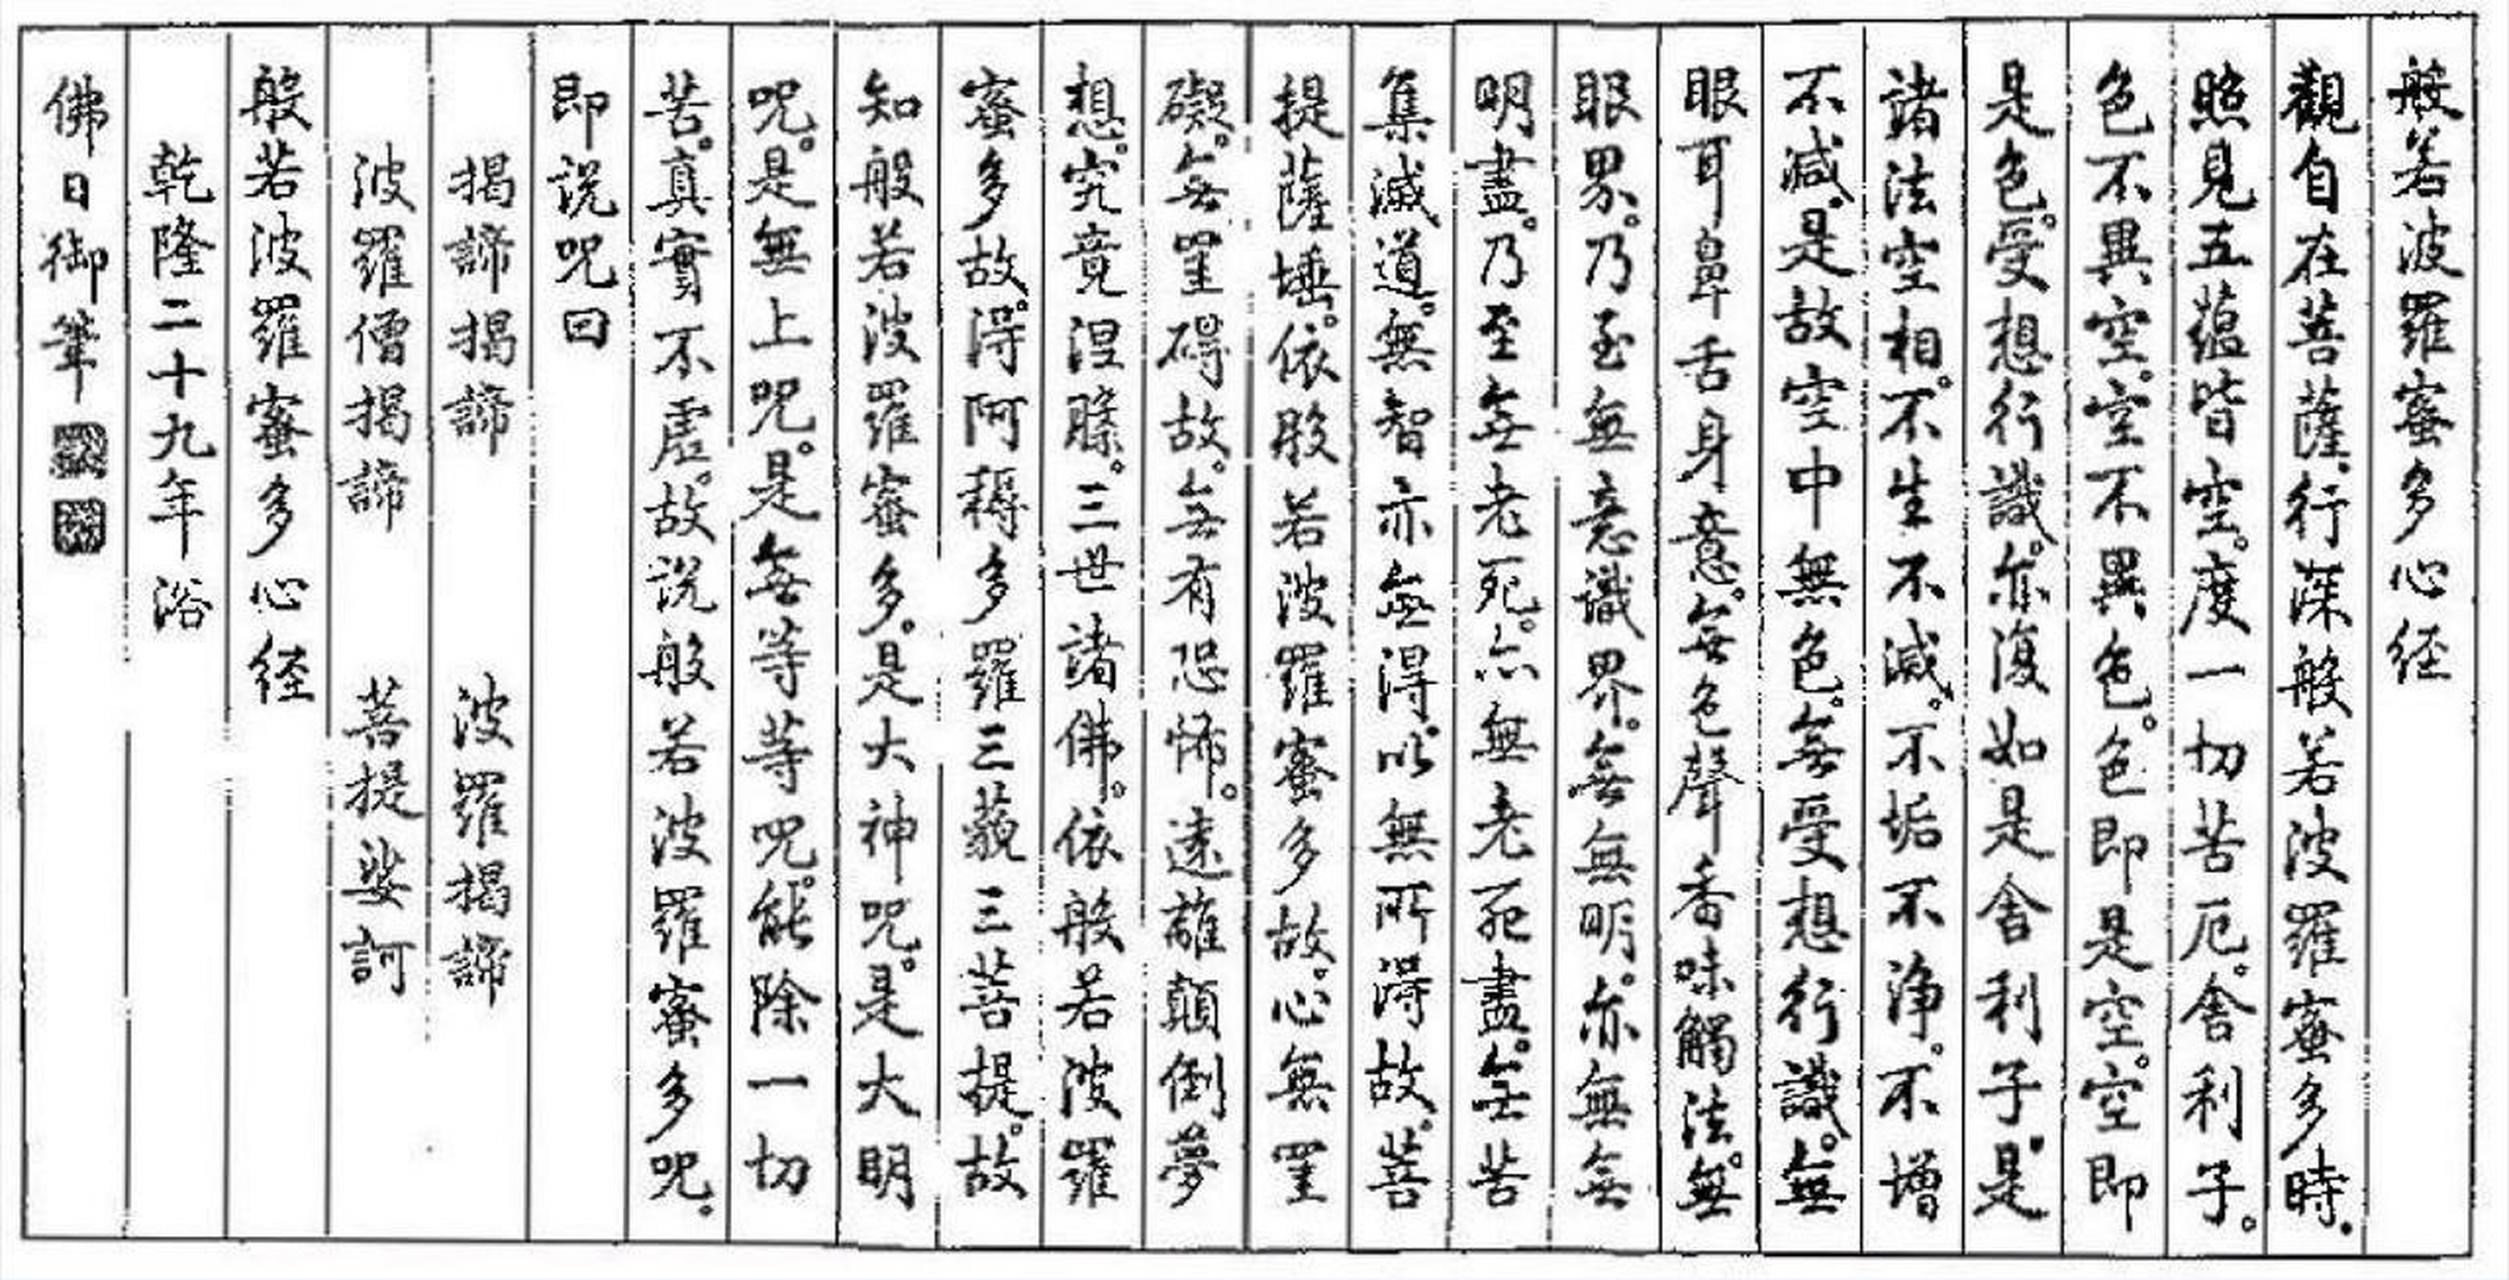 般若波羅蜜多心経
觀自在菩薩。行深般若波羅蜜多時。
照見五蘊皆空。度一切苦厄。舍利子。
色不異空。空不異色。色即是空。空即
是色。受想行識。亦復如是舍利子。是
諸法空相。不生不滅。不垢不浄。不增
不减。是故空中無色。無受想行識。無
眼耳鼻舌身意。無色聲香味觸法。無
眼界。乃至無意識界。無無明。亦無無
明盡。乃至無老死。亦無老死盡。無苦
集滅道。無智亦無得。以無所得故。菩
提薩埵。依般若波羅蜜多故。心無罣
礙。無罣碍故。無有恐怖。遠離顛倒夢
想。究竟涅槃。三世諸佛。依般若波羅
蜜多故。得阿耨多羅三藐三菩提。故
知般若波羅蜜多。是大神咒。是大明
咒。是無上咒。是無等等咒。能除一切
苦。真實不虛。故説般若波羅蜜多咒。
即説咒曰
揭諦揭諦 波羅揭諦
波羅僧揭諦 菩提娑訶
般若波羅蜜多心経
乾隆二十九年浴
佛日御筆